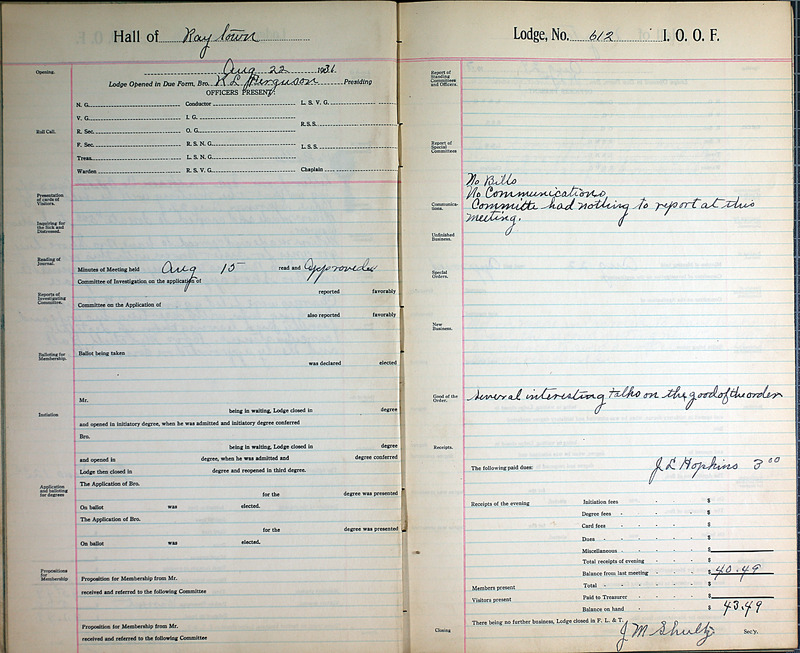 Hall of Raytown
Aug 22 1931.
Opening.
Lodge Opened in Due Form, Bro. R L Ferguson Presiding
OFFICERS PRESENT:
N. G. Conductor L. S. V. G.
V. G. I. G. R.S.S.
Roll Call.
R. Sec. O. G.
F. Sec. R. S. N. G. L.S.S.
Treas. L. S. N. G.
Warden R. S. V. G. Chaplain
Presentation of cards of Visitors.
Inquiring for the Sick and Distressed.
Reading of Journal.
Minutes of Meeting held Aug 15 read and approved
Committee of Investigation on the application of
reported favorably
Reports of Investigating Committee.
Committee on the Application of
also reported favorably
Balloting for Membership.
Ballot being taken
was declared elected
Mr.
being in waiting, Lodge closed in degree
Initiation
and opened in initiatory degree, when he was admitted and initiatory degree conferred
Bro.
being in waiting, Lodge closed in degree
and opened in degree, when he was admitted and degree conferred
Lodge then closed in degree and reopened in third degree.
Application and balloting for degrees
The Application of Bro.
for the degree was presented
On ballot was elected.
The Application of Bro.
for the degree was presented
On ballot was elected.
Propositions for Membership
Proposition for Membership from Mr.
received and referred to the following Committee
Proposition for Membership from Mr.
received and referred to the following Committee
Lodge, No. 612 I. O. O. F.
Report of Standing Committees and Officers.
Report of Special Committees
No Bills
No Communications
Communications.
Committe had nothing to report at this
meeting.
Unfinished Business.
Special Orders.
New Business.
Good of the Order.
Several interesting talks on the good of the order
Receipts.
The following paid dues: J L Hopkins 3 00
Receipts of the evening Initiation fees $
Degree fees $
Card fees $
Dues $
Miscellaneous $
Total receipts of evening $
Balance from last meeting $ 40.49
Members present Total $
Visitors present Paid to Treasurer $
Balance on hand $ 43.49
There being no further business, Lodge closed in F. L. & T.
Closing J M Shultz Sec'y.